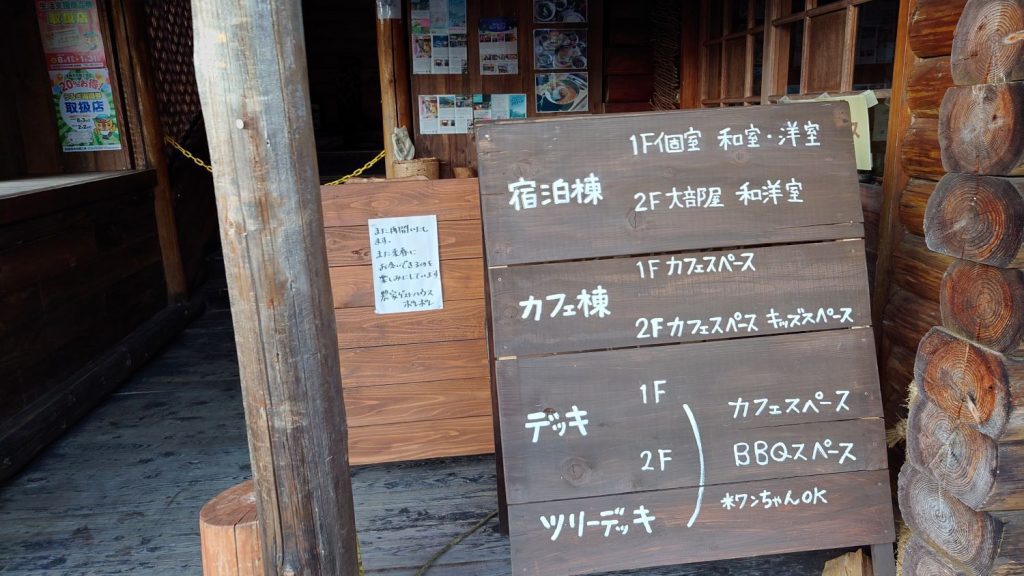 取扱店
20%お得!
取扱店
また再開いたし
ます。
また来春に
お会いできるのを
楽しみにしています
農家ゲストハウス
宿泊棟
1F個室 和室・洋室
2F大部屋 和洋室
カフェ棟
1F カフェスペース
2Fカフェスペース キッズスペース
デッキ
1F
2F
ツリーデッキ
カフェスペース
BBQスペース
*ワンちゃんOK